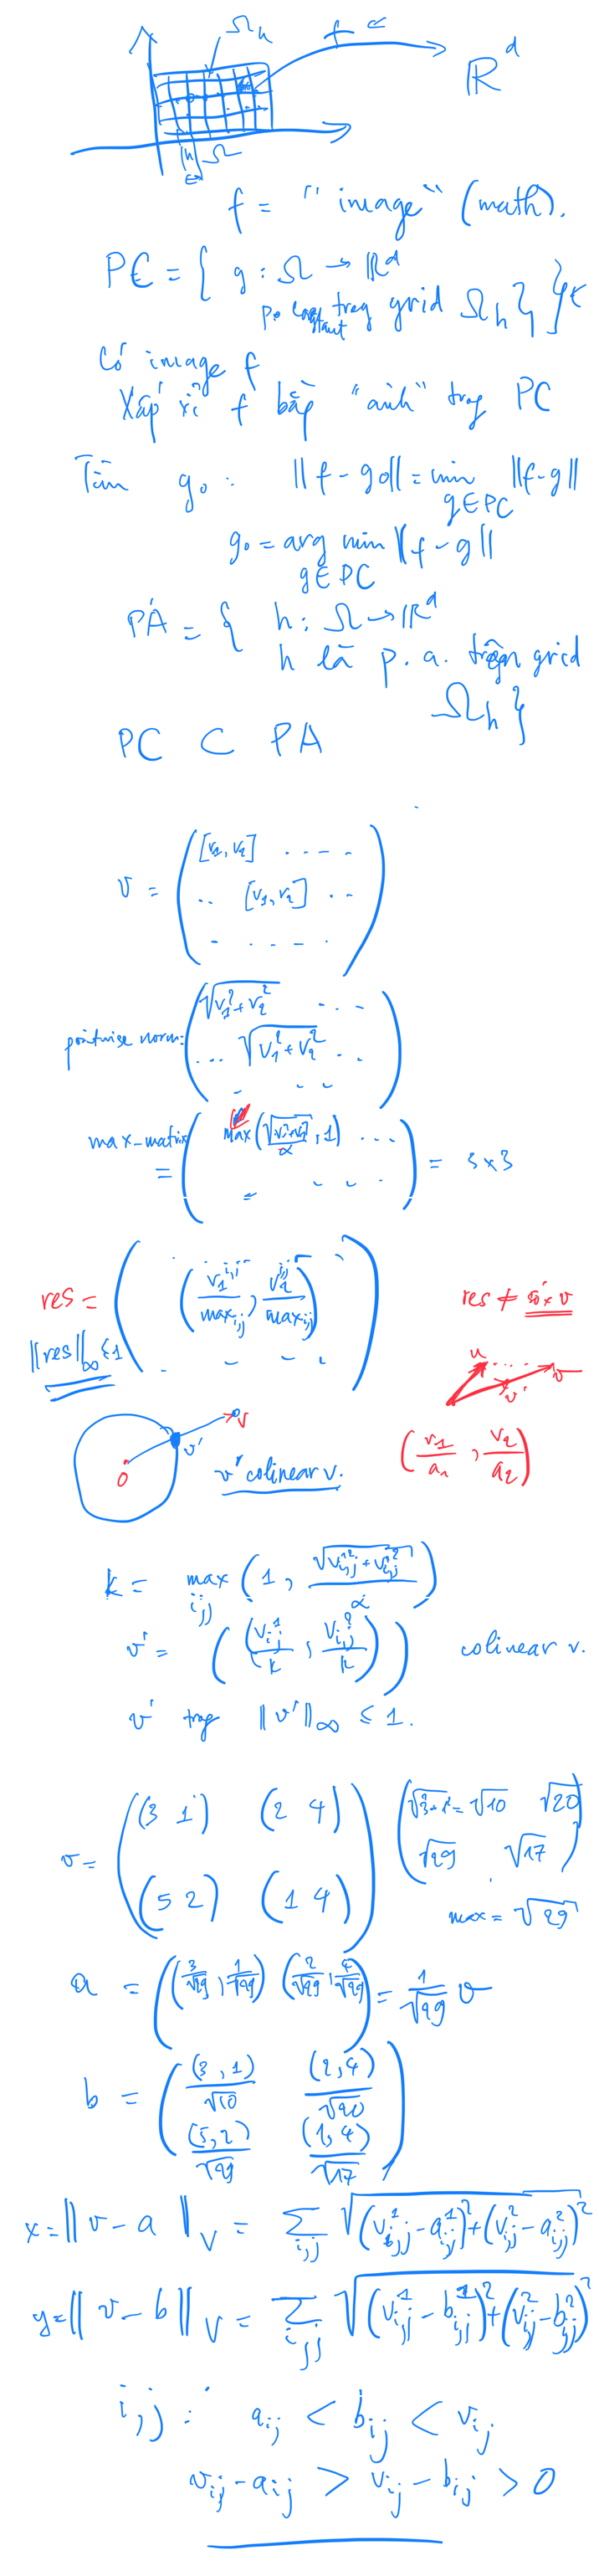 Ω_h f ∈ ℝ^d
h Ω
f = "image" (math).
PC = { g : Ω → ℝ^d
p. constant trog grid Ω_h }
Có image f
Xấp xỉ f bằg "ảnh" trog PC
Tìm g₀ : ‖f - g₀‖ = min ‖f - g‖
g∈PC
g₀ = arg min ‖f - g‖
g∈PC
PA = { h : Ω → ℝ^d
h là p. a. trên grid
Ω_h }
PC ⊂ PA
v = ( [v₁, v₂] .....
.. [v₁, v₂] ..
. . . . . )
pointwise norm: ( √(v₁² + v₂²) ...
... √(v₁² + v₂²) ..
. . . )
max-matrix = ( max(√(v₁²+v₂²)/α, 1) ...
. . . . ) = 3 x 3
res = ( (v₁^{i,j}/max_{ij}, v₂^{i,j}/max_{ij}) )
res ≠ số x v
‖res‖_∞ ≤ 1
u v v'
0 v' v
v' colinear v.
(v₁/a₁, v₂/a₂)
k = max_{i,j} (1, √(v_{i,j}^{1 2} + v_{i,j}^{2 2})/α)
v' = ((v_{i,j}^1/k, v_{i,j}^2/k)) colinear v.
v' trog ‖v'‖_∞ ≤ 1.
v = ( (3 1) (2 4)
(5 2) (1 4) )
( √(3²+1²) = √10 √20
√29 √17 )
max = √29
a = ( (3/√29, 1/√29) (2/√29, 4/√29) ) = 1/√29 v
b = ( (3, 1)/√10 (2, 4)/√20
(5, 2)/√29 (1, 4)/√17 )
x = ‖v - a‖_V = Σ_{i,j} √((v_{ij}^1 - a_{ij}^1)² + (v_{ij}^2 - a_{ij}^2)²)
y = ‖v - b‖_V = Σ_{i,j} √((v_{ij}^1 - b_{ij}^1)² + (v_{ij}^2 - b_{ij}^2)²)
i,j : a_{ij} < b_{ij} < v_{ij}
v_{ij} - a_{ij} > v_{ij} - b_{ij} > 0